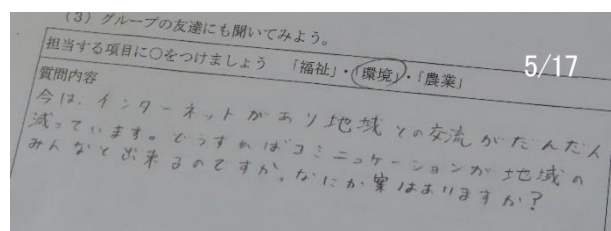 (3) グループの友達にも聞いてみよう。
担当する項目に○をつけましょう 「福祉」・「環境」・「農業」
5/17
質問内容
今は、インターネットがあり地域との交流がだんだん
減っています。どうすればコミニュケーションが地域の
みんなと出来るのですか。なにか案はありますか?